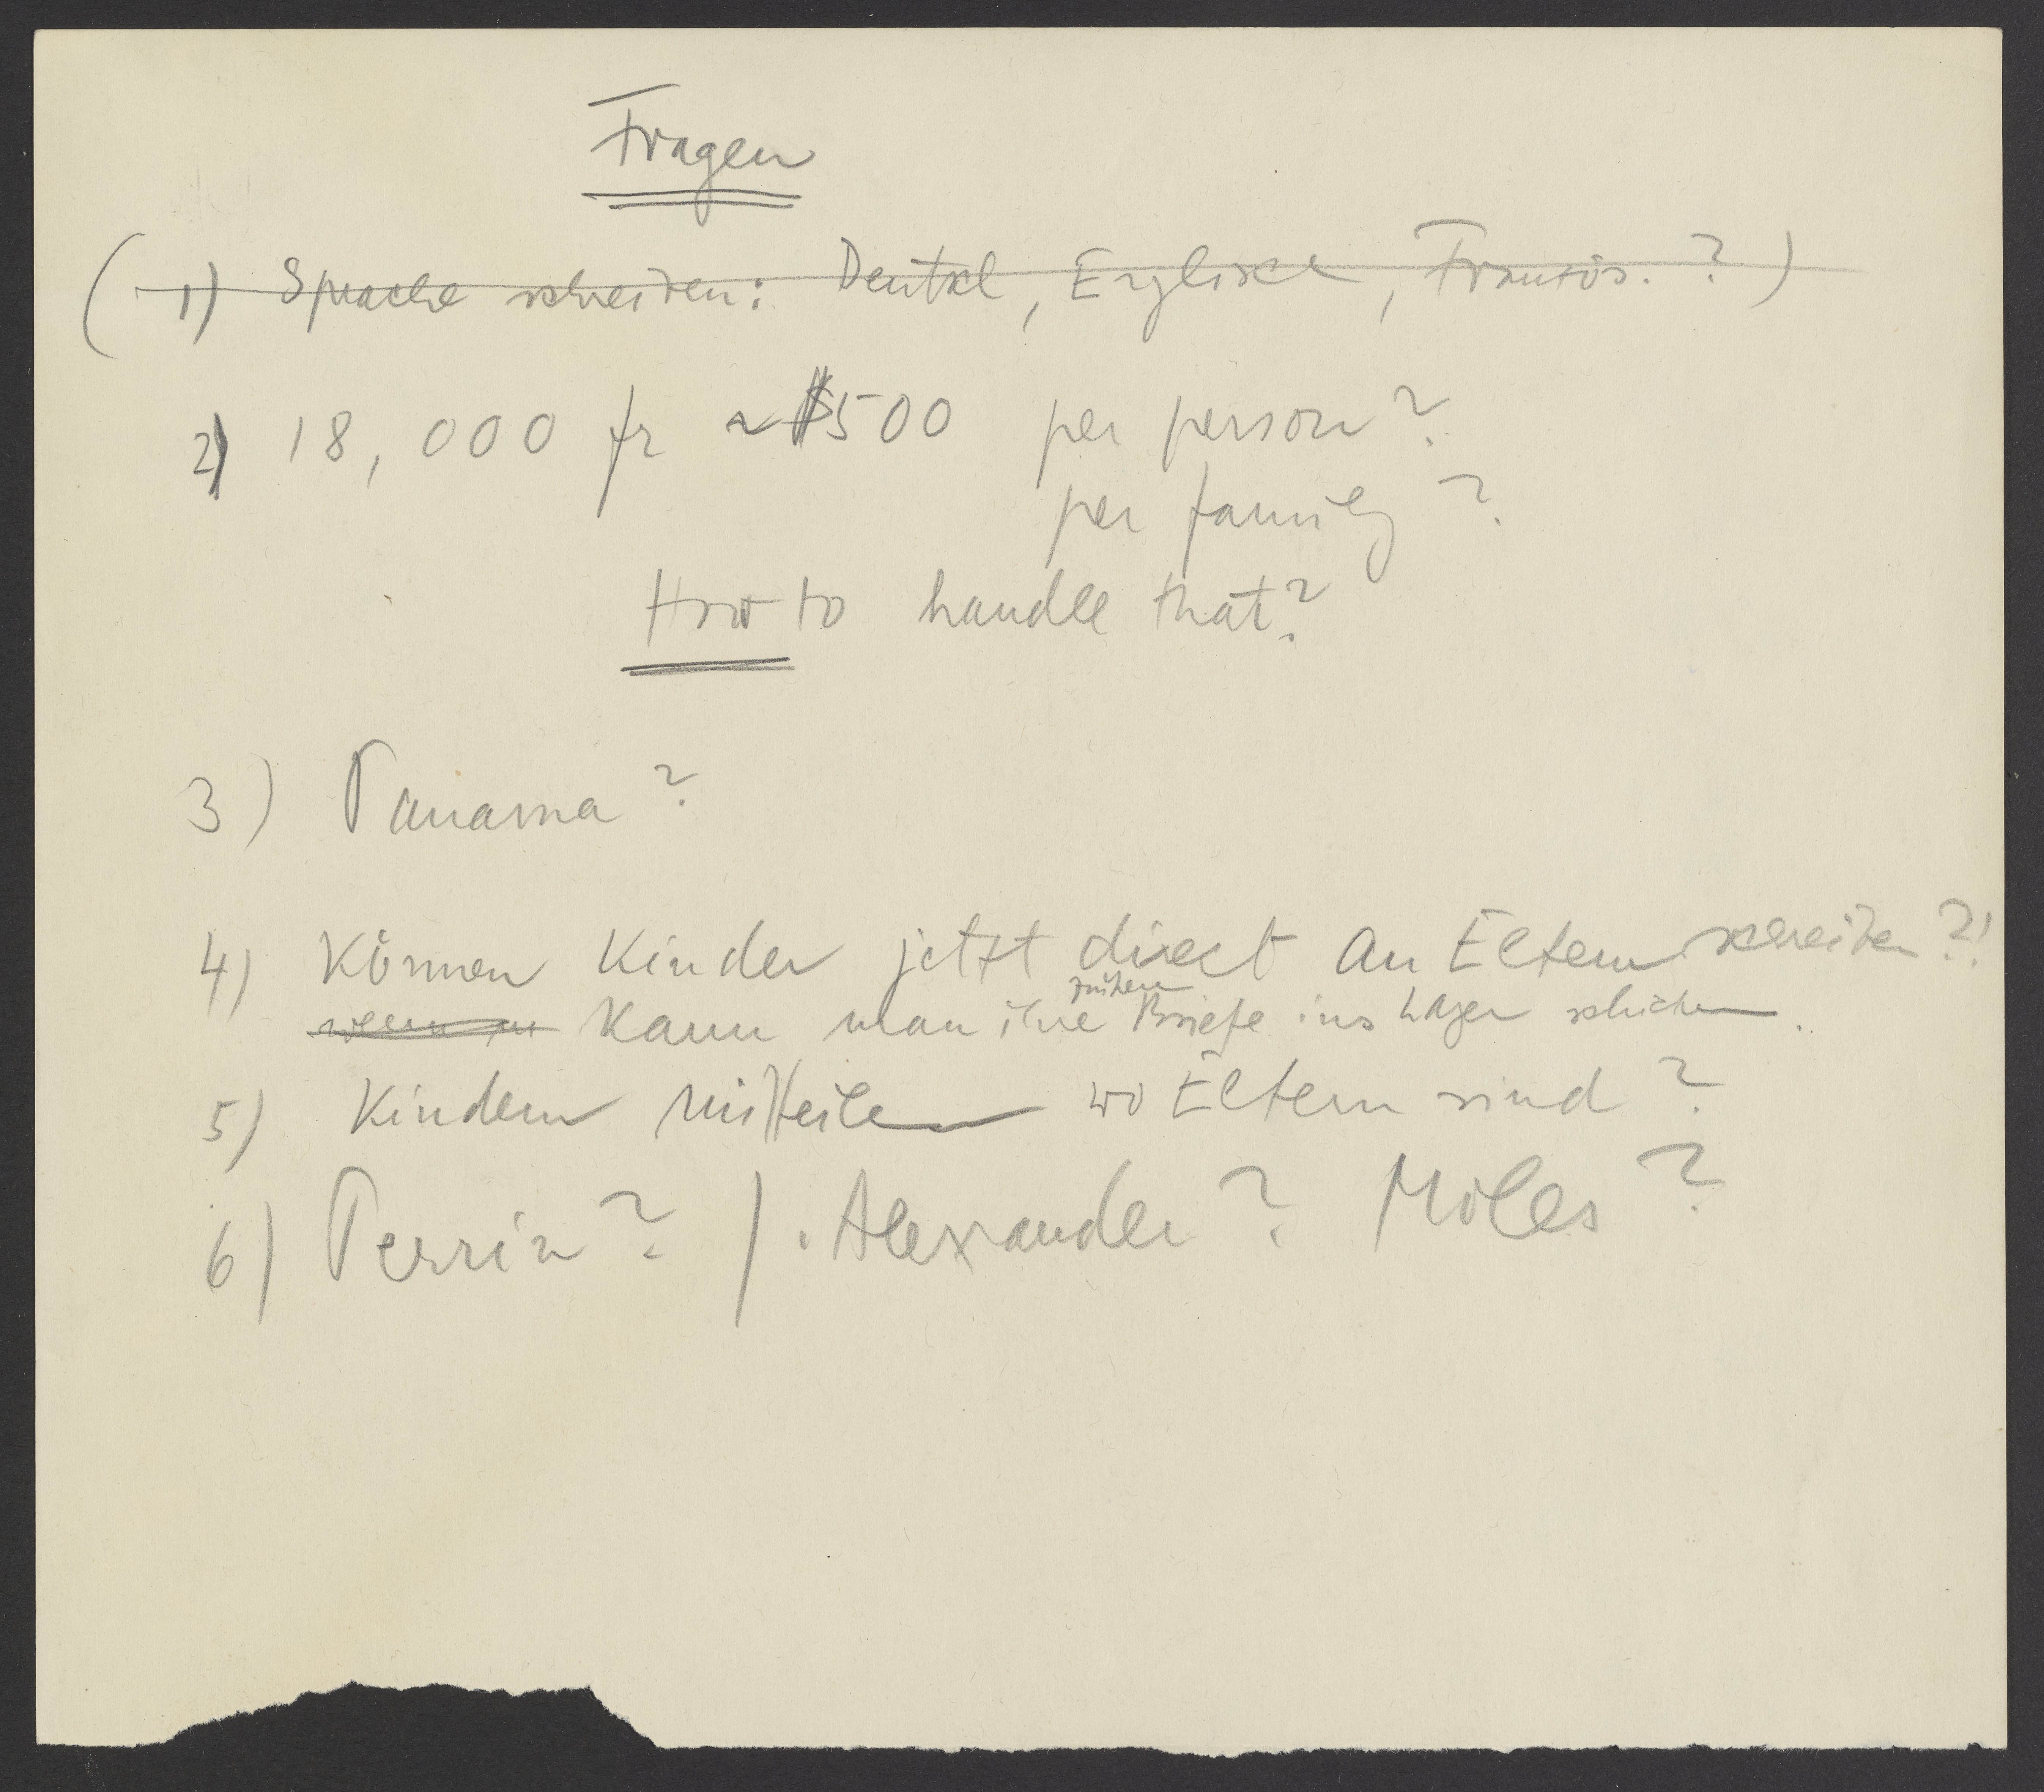 Fragen
(1) Sprache schreiben: Deutsch, Englisch, Französ. ?)
2) 18,000 fr ~ $500 per person?
per family?
How to handle that?
3) Panama?
4) Können Kinder jetzt direct an Eltern schreiben?!
früheren
wenn Kann man ihre Briefe ins Lager schicken.
5) Kindern mitteilen wo Eltern sind?
6) Perrin? / . Alexander? Moles?